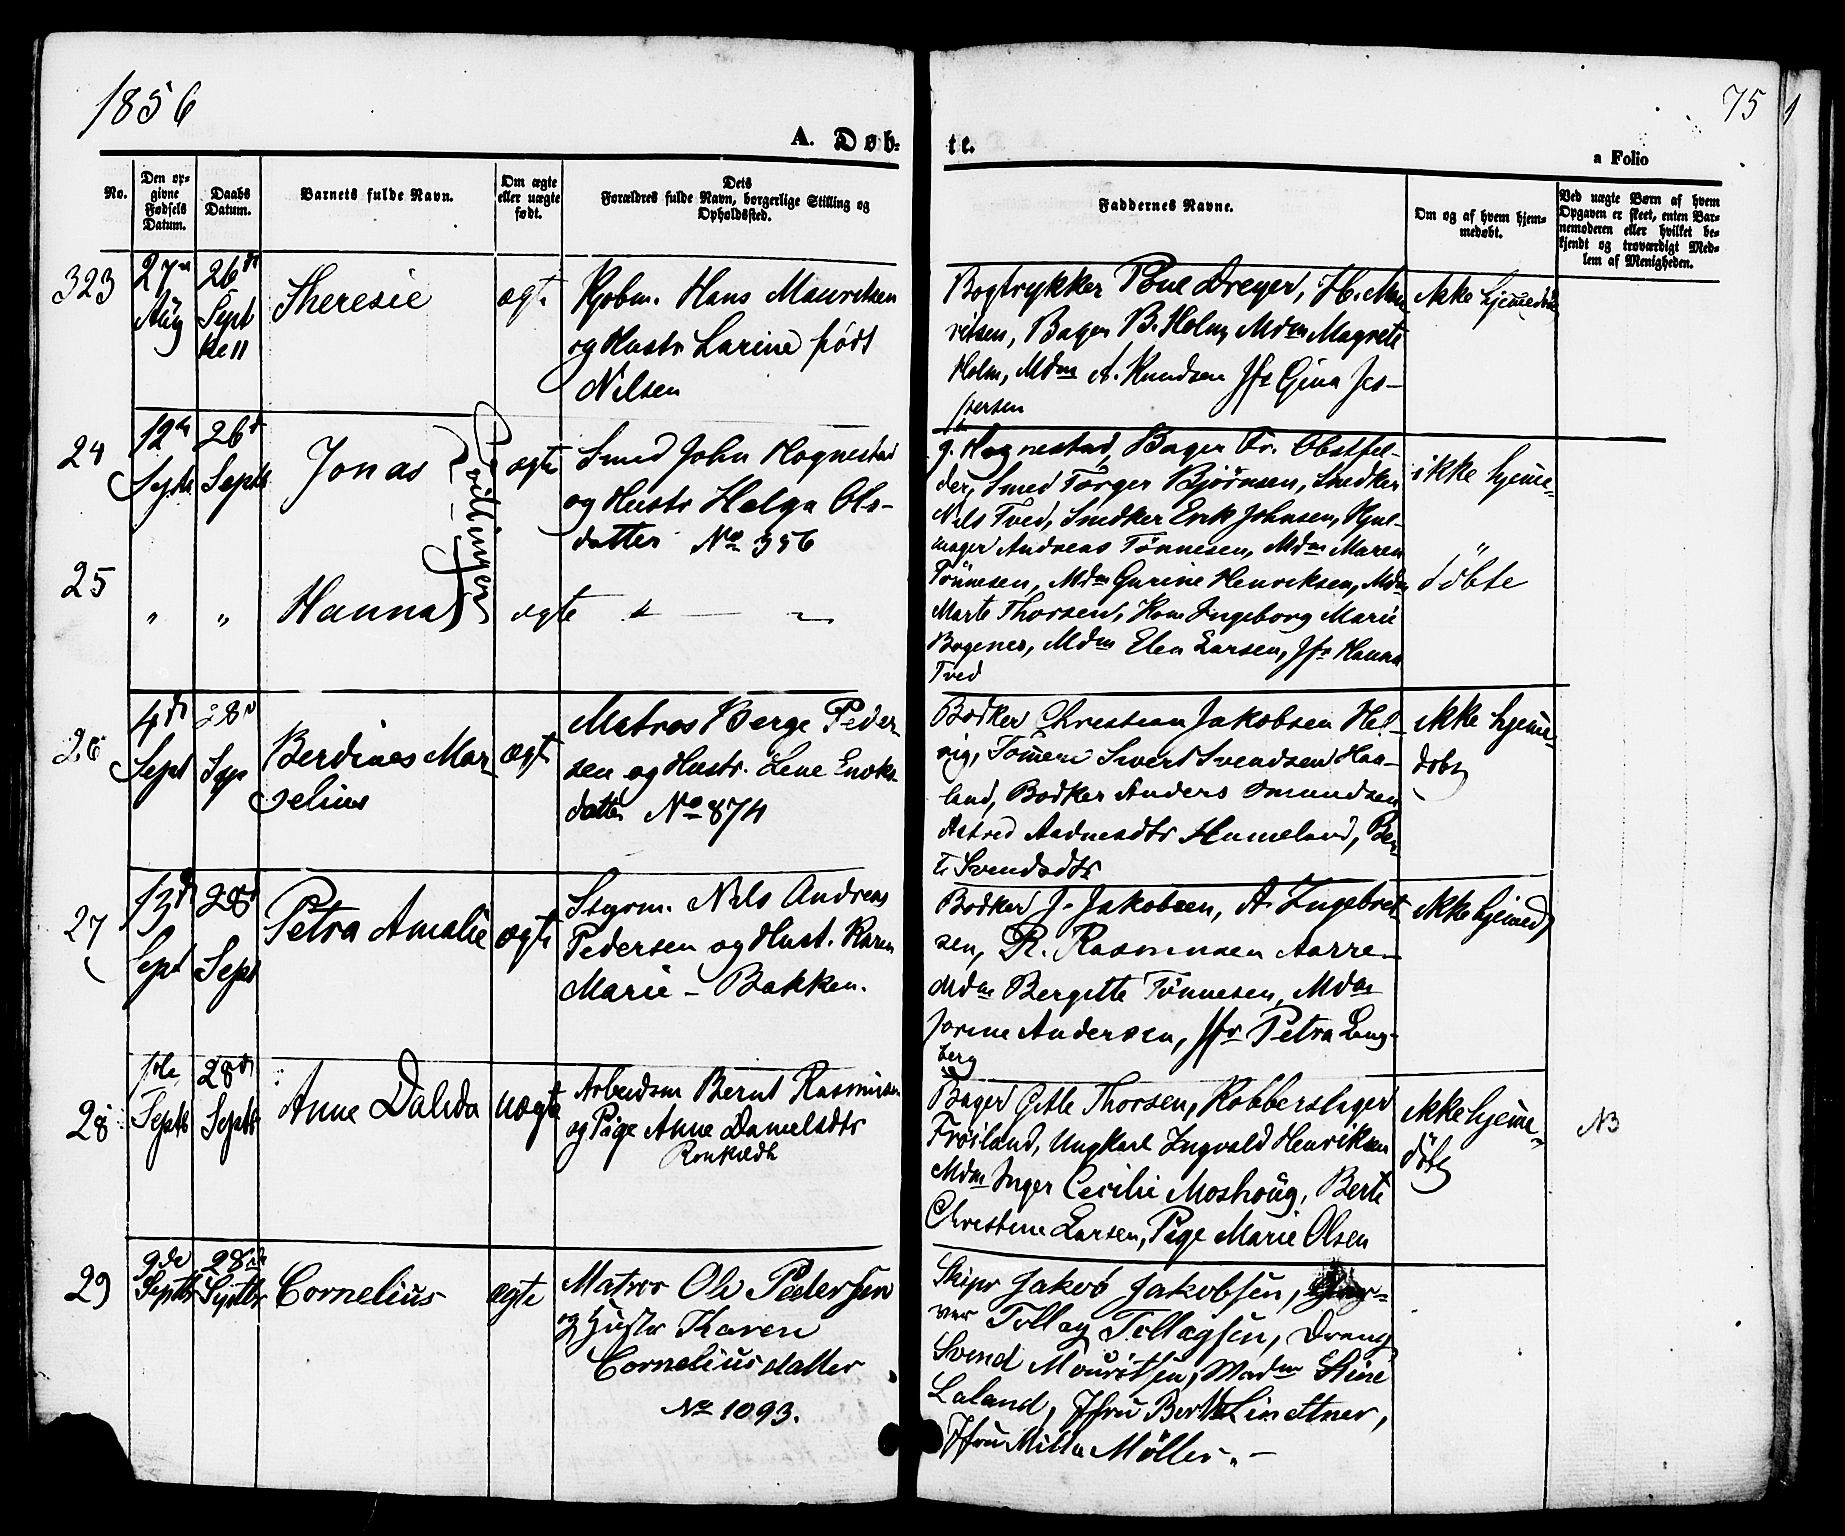 1856
75
A. Døb-
te.
a Folio
No.
Den op-
givne
Fødsels
Datum.
Daabs
Datum.
Barnets fulde Navn.
Om ægte
eller uægte
født.
Dets
Forældres fulde Navn, borgerlige Stilling og
Opholdssted.
Faddernes Navne.
Om og af hvem hjem-
medøbt.
Ved uægte Børn af hvem
Opgaven er skeet, enten Bar-
nemoderen eller hvilket be-
kjendt og troværdigt Med-
lem af Menigheden.
323
27
Aug
26
Sept
Theresie
ægte
Kjøbm. Hans Mauritsen
og Hustr Larine født
Nilsen
Bogtrykker Dreyer, H. Mau
ritsen, Bager B. Holm, Mdm Magrete
Holm, Mdm A. Knudsen Jfr Gina Jes-
persen
ikke hjemedøbt
24
12te
Septb
26d
Septb
Jonas
Tvillinger
ægte
Smed John Hognestad
og Hustr Helga Ols-
datter No 356
g. Hognestad, Bager Fr. Obstfel-
der, Smed Tørger Bjørnsen, Snedker
Nils Tved, Snedker Erik Johnsen, Hjul-
mager Andreas Tönnesen, Mdm Maren
Tönnesen, Mdm Gurine Henriksen, Mdm
Marte Thorsen, Kone Ingeborg Marie
Bogenes, Mdm Elen Larsen, Jfr Hanna
Tved
ikke hjeme-
döbte
25
" "
Hanna
ægte
" "
26
4de
Sept
28
Sep
Berdines Mar-
selius
ægte
Matros Berge Peder-
sen og Hustr. Lene Enoks-
datter No 874
Bødker Christian Jakobsen Hel-
vig, Tømmerm Sivert Svendsen Haa-
land, Bødker Anders Omundsen
Astred Aadnesdtr Humeland, Ber-
te Svendsdtr
ikke hjeme-
døbt
27
13d
Sept
28d
Sept
Petra Amalie
ægte
Styrm. Nils Andreas
Pedersen og Hust. Karen
Marie - Bakken.
Bødker J. Jakobsen, A. Ingebret
sen, R. Rasmusen Aarre-
Mdm Bergitte Tönnesen, Mdm
Jorine Andersen, Jfr Petra Lang-
berg
ikke hjemed
28
1ste
Septb
28d
Septb
Anne Dalida
uægte
Arbeidsm Bernt Rasmusen
og Pige Anne Danielsdtr
Bager Gitle Thorsen, Kobberslager
Fröiland, Ungkarl Ingvald Henriksen
Mdm Inger Cecilie Moshoug, Berte
Christine Larsen, Pige Marie Olsen
ikke hjeme-
döbt
NB
29
9de
Septbr
28de
Septbr
Cornelius
ægte
Matros Ole Pedersen
og Hustr Karen
Corneliusdatter
No 1093.
Skipr Jakob Jakobsen,
ver Tollag Tollagsen, Dreng
Svend Mouritsen, Madm Stine
Laland, Jfru Berthe Lindtner,
Jfru Milla Möller. -